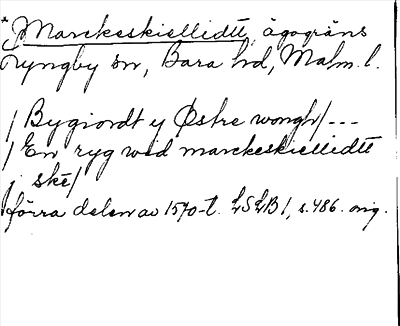 *Marckeskiellidtt, ägogräns
Lyngby sn, Bara hd, Malm. l.
/Bygiordt y Østre wongh/---
/En ryg wid marckeskiellidtt
j ske/
förra delen av 1570-t. LSLB I, s. 486. orig.